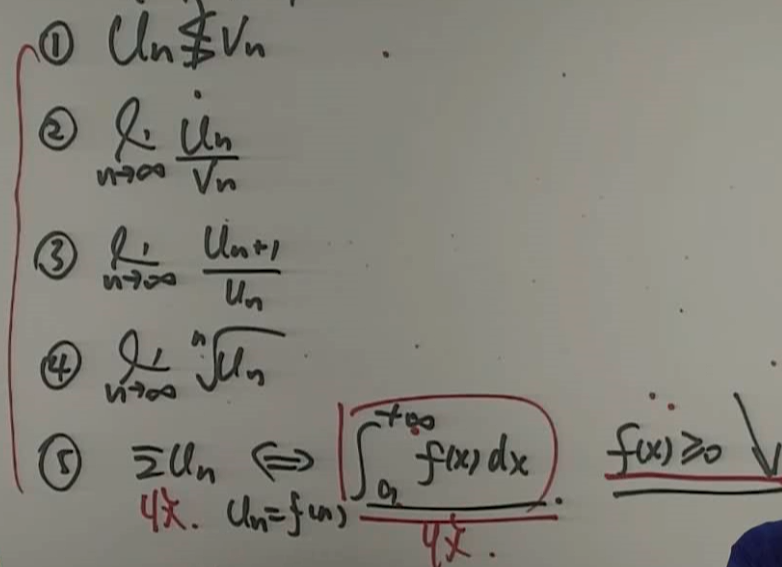 ① Uₙ ≸ Vₙ
② lim n→∞ Uₙ/Vₙ
③ lim n→∞ Uₙ₊₁/Uₙ
④ lim n→∞ ⁿ√Uₙ
⑤ ΣUₙ ⟺ ∫ₐ^{+∞} f(x)dx. f(x)≥0 ↘
收. Uₙ=f(n) 收.